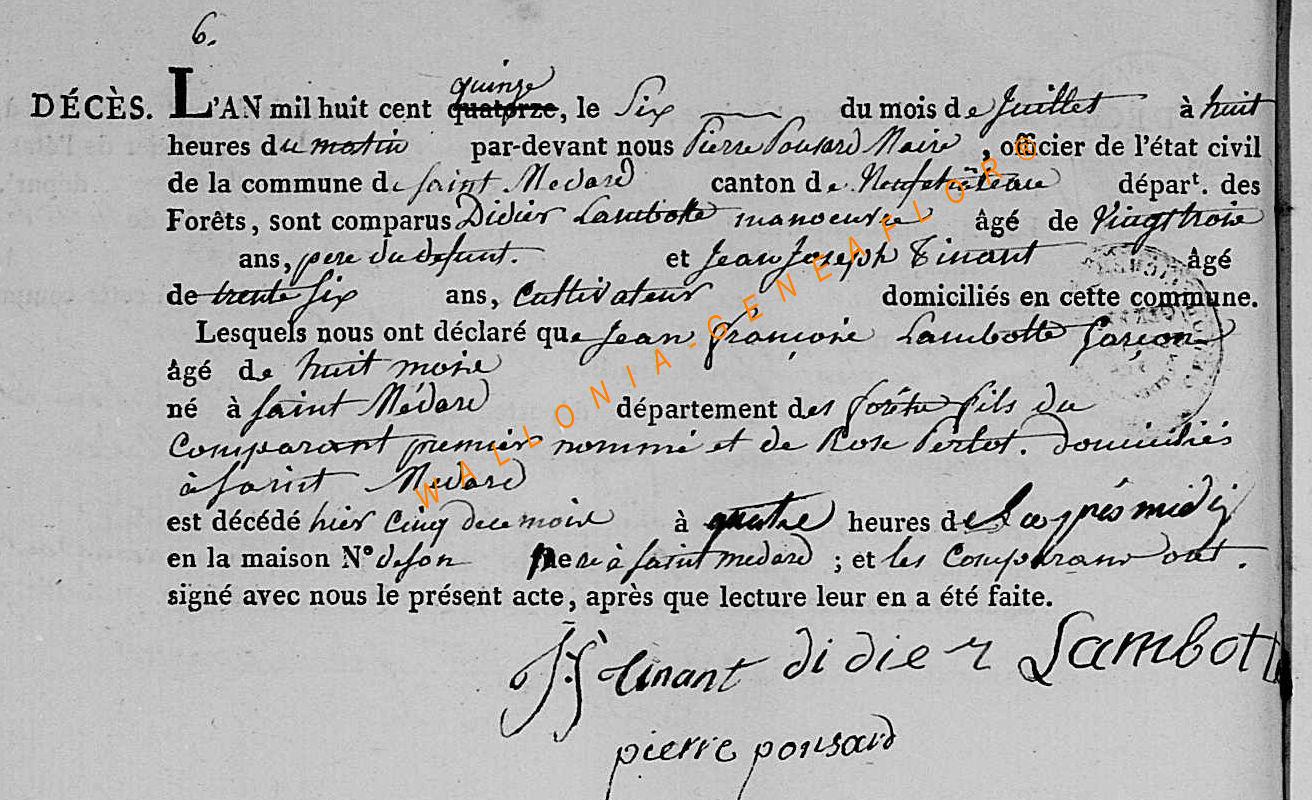 6.
quinze
DÉCÈS. L'AN mil huit cent quatorze, le Six du mois de Juillet à huit
heures du matin par-devant nous Pierre Pousard Maire, officier de l'état civil
de la commune de saint Medard canton de Neufchâteau dépar^t. des
Forêts, sont comparus Didier Lambotte manoeuvre âgé de vingt trois
ans, pere du defunt. et Jean Joseph Tinant âgé
de trente six ans, Cultivateur domiciliés en cette commune.
Lesquels nous ont déclaré que Jean françois Lambotte garçon
âgé de huit mois
né à saint Médard département des forêts fils du
Comparant premier nommé et de Rose Pertot. domiciliés
à saint Medard
est décédé hier Cinq de ce mois à quatre heures de
en la maison N° de son pere à saint medard ; et les Comparans ont.
signé avec nous le présent acte, après que lecture leur en a été faite.
J:J: tinant didier Lambott
pierre pousard
WALLONIA-GENEAFLOR®